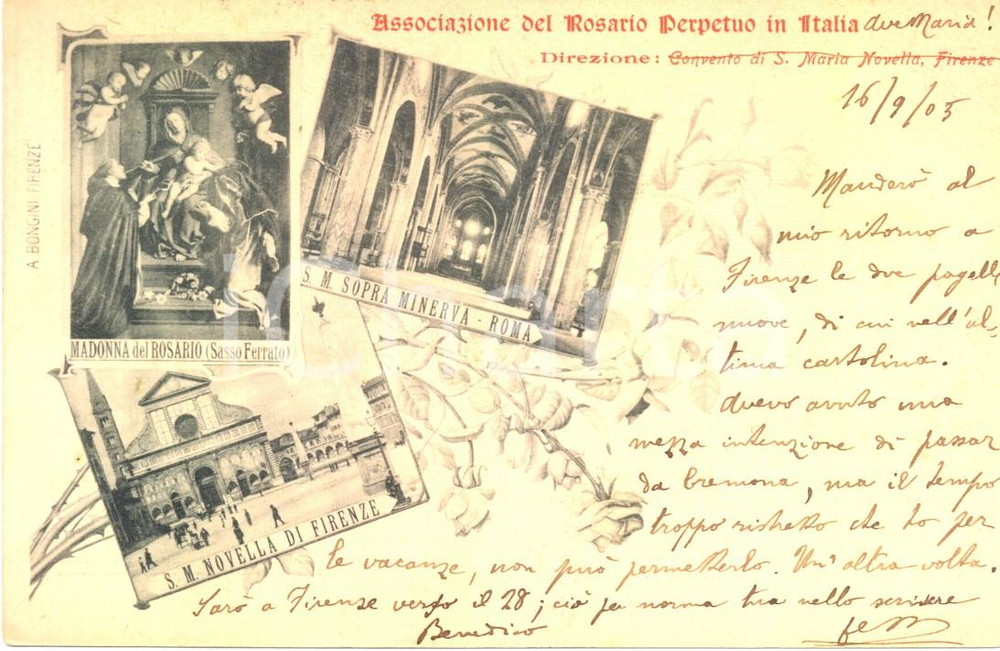 Associazione del Rosario Perpetuo in Italia Ave Maria!
Direzione: Convento di S. Maria Novella, Firenze
16/9/05
A BONGINI FIRENZE
MADONNA del ROSARIO (Sasso Ferrato)
S. M. SOPRA MINERVA - ROMA
S. M. NOVELLA DI FIRENZE
Manderò al
mio ritorno a
Firenze le due pagelle
nuove, di cui nell'ul-
tima cartolina.
Avevo avuto una
mezza intenzione di passar
da Cremona, ma il tempo
troppo ristretto che ho per
le vacanze, non può permetterlo. Un'altra volta.
Sarò a Firenze verso il 28; ciò per norma tua nello scrivere
Benedico